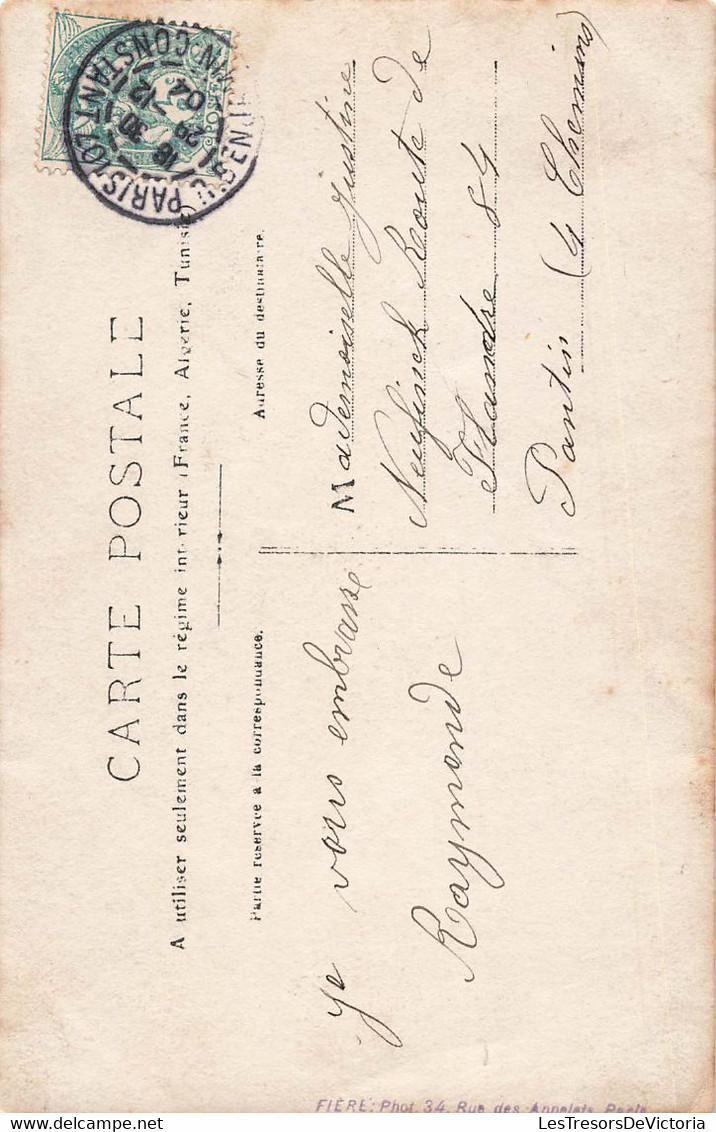 CARTE POSTALE
A utiliser seulement dans le régime intérieur (France, Algérie, Tunisie)
Partie réservée à la correspondance.
Adresse du destinataire.
je vous embrasse
Raymonde
Mademoiselle Justine
Neufinck Route de
Flandre 84
Pantin (4 Chemins)
PARIS 107
CONSTANT
18 30
29 12
04
FIÈRE: Phot. 34, Rue des Annelets, Paris
LesTresorsDeVictoria
LesTresorsDeVictoria